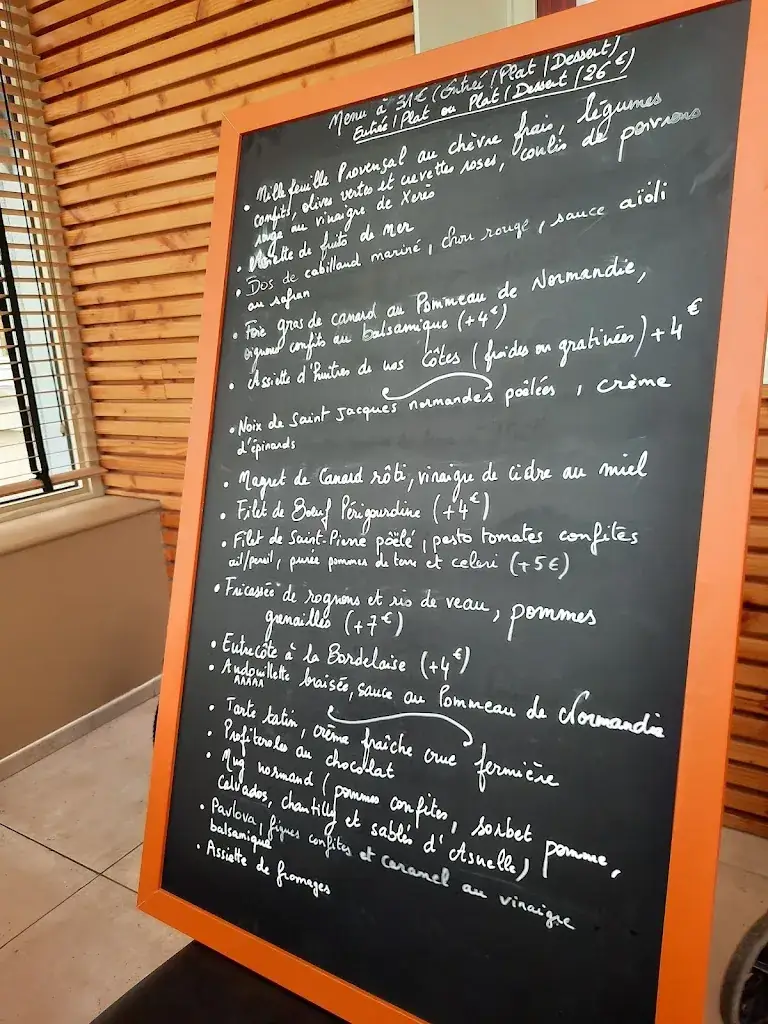 Menu à 31€ (Entrée / Plat / Dessert)
Entrée / Plat ou Plat / Dessert (26€)
• Millefeuille Provençal au chèvre frais, légumes
confits, olives vertes et crevettes roses, coulis de poivrons
rouge au vinaigre de Xerès
• Assiette de fruits de mer
• Dos de cabillaud mariné, chou rouge, sauce aïoli
au safran
• Foie gras de canard au Pommeau de Normandie,
oignons confits au balsamique (+4€)
• Assiette d'huitres de nos côtes (froides ou gratinées) +4€
• Noix de Saint Jacques normandes poêlées, crème
d'épinards
• Magret de Canard rôti, vinaigre de cidre au miel
• Filet de Boeuf Périgourdine (+4€)
• Filet de Saint-Pierre pôêlé, pesto tomates confites
ail/persil, purée pommes de terre et celeri (+5€)
• Fricassée de rognons et ris de veau, pommes
grenailles (+7€)
• Entrecôte à la Bordelaise (+4€)
• Andouillette braisée, sauce au Pommeau de Normandie
AAAAA
• Tarte tatin, crème fraîche crue fermière
• Profiteroles au chocolat
• Mug normand (pommes confites, sorbet pomme,
calvados, chantilly et sablés d'Asnelle)
• Pavlova, figues confites et caramel au vinaigre
balsamique
• Assiette de fromages